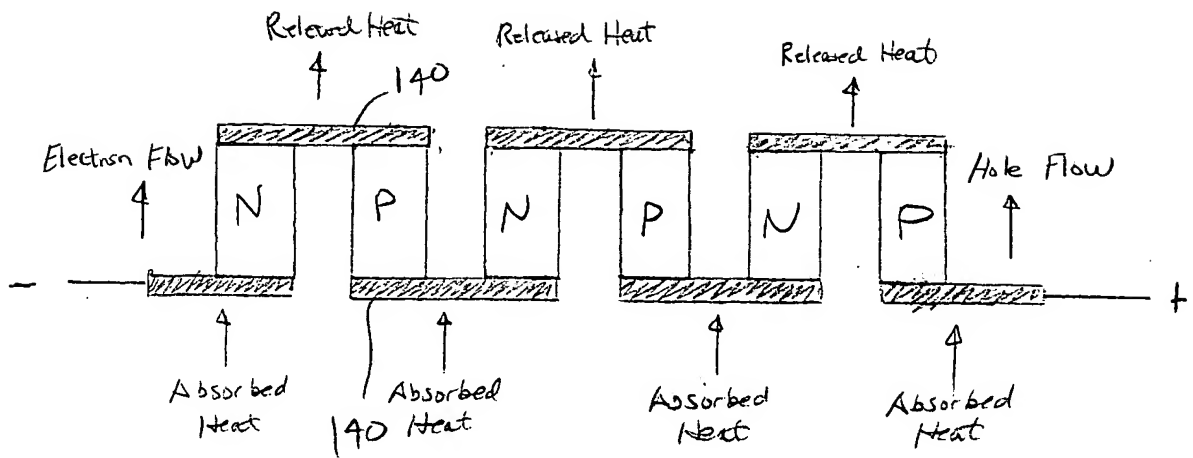 Released Heat
Released Heat
Released Heat
140
Electron Flow
N
P
N
P
N
P
Hole Flow
-
+
Absorbed
Heat
140
Absorbed
Heat
Absorbed
Heat
Absorbed
Heat